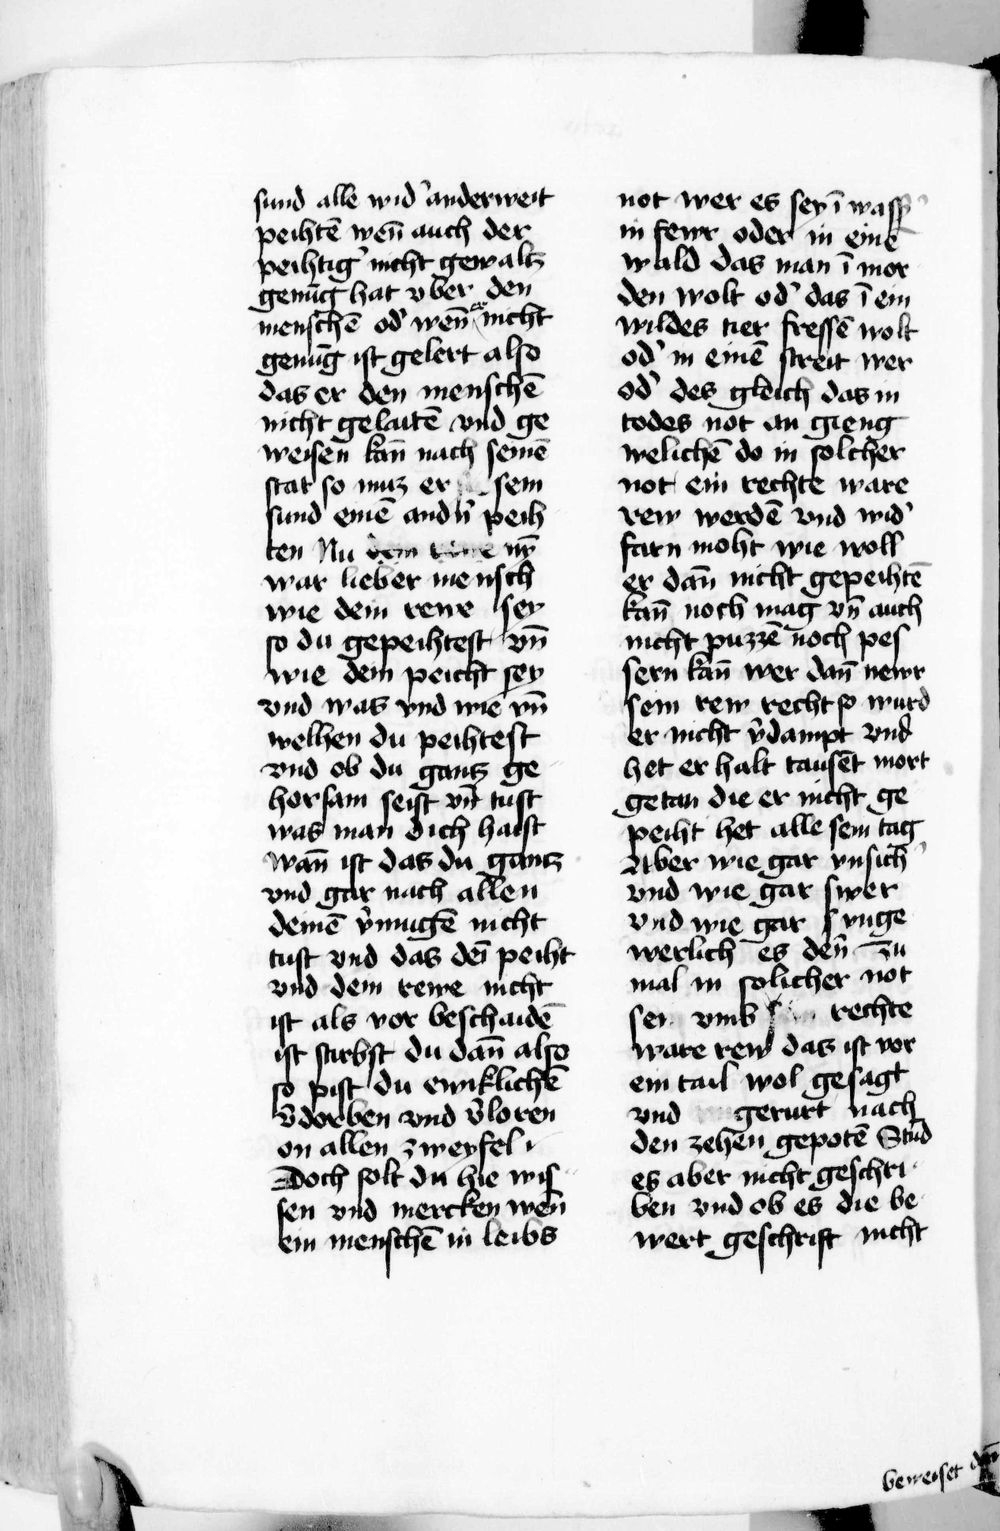 sund alle wid' anderweit
peihtē wēn auch der
peihtig' nicht gewaltz
genūg hat vber den
menschē od' wēn er nicht
genūg ist gelert also
das er den menschē
nicht gelaitē vnd ge
weisen kān nach seinē
stat so muz er sein
sund einē and'n peih
ten Nu nȳ
war lieber mensch
wie dein rewe sey
so du gepeihtest vn̄
wie dein peicht sey
vnd was vnd wie vn̄
welhen du peihtest
vnd ob du gantz ge
horsam seist vn̄ tust
was man dich haist
Wān ist das du gantz
vnd gar nach allen
deinē v'mugē nicht
tust vnd das deī peiht
vnd dein rewe nicht
ist als vor beschaidē
ist stirbst du dān also
so pist du ewiklichē
v'dorben vnd v'loren
on allen zweyfel
Doch solt du hie wis
sen vnd mercken wēn
ein menschē in leibs
not wer es sey ī wass'
in fewr oder in einē
wald das man ī mor
den wolt od' das ī ein
wildes tier fressē wolt
od' in einē streit wer
od' des gleich das in
todes not an gieng
welichē do in solcher
not ein rechte ware
rew werdē vnd wid'
farn moht wie woll
er dān nicht gepeihtē
kān noch mag vn̄ auch
nicht puzzē noch pes
sern kān wer dān newr
sein rew recht so wurd
er nicht v'dampt vnd
het er halt tausēt mort
getan die er nicht ge
peiht het alle sein tag
Aber wie gar vnsich'
vnd wie gar swer
vnd wie gar vnge
werlich es dēn zu
mal in solicher not
sei vmb rechte
ware rew das ist vor
ein tail wol gesagt
vnd gerurt nach
den zehen gepotē Stūd
es aber nicht geschri
ben vnd ob es die be
wert geschrift nicht
beweiset dān